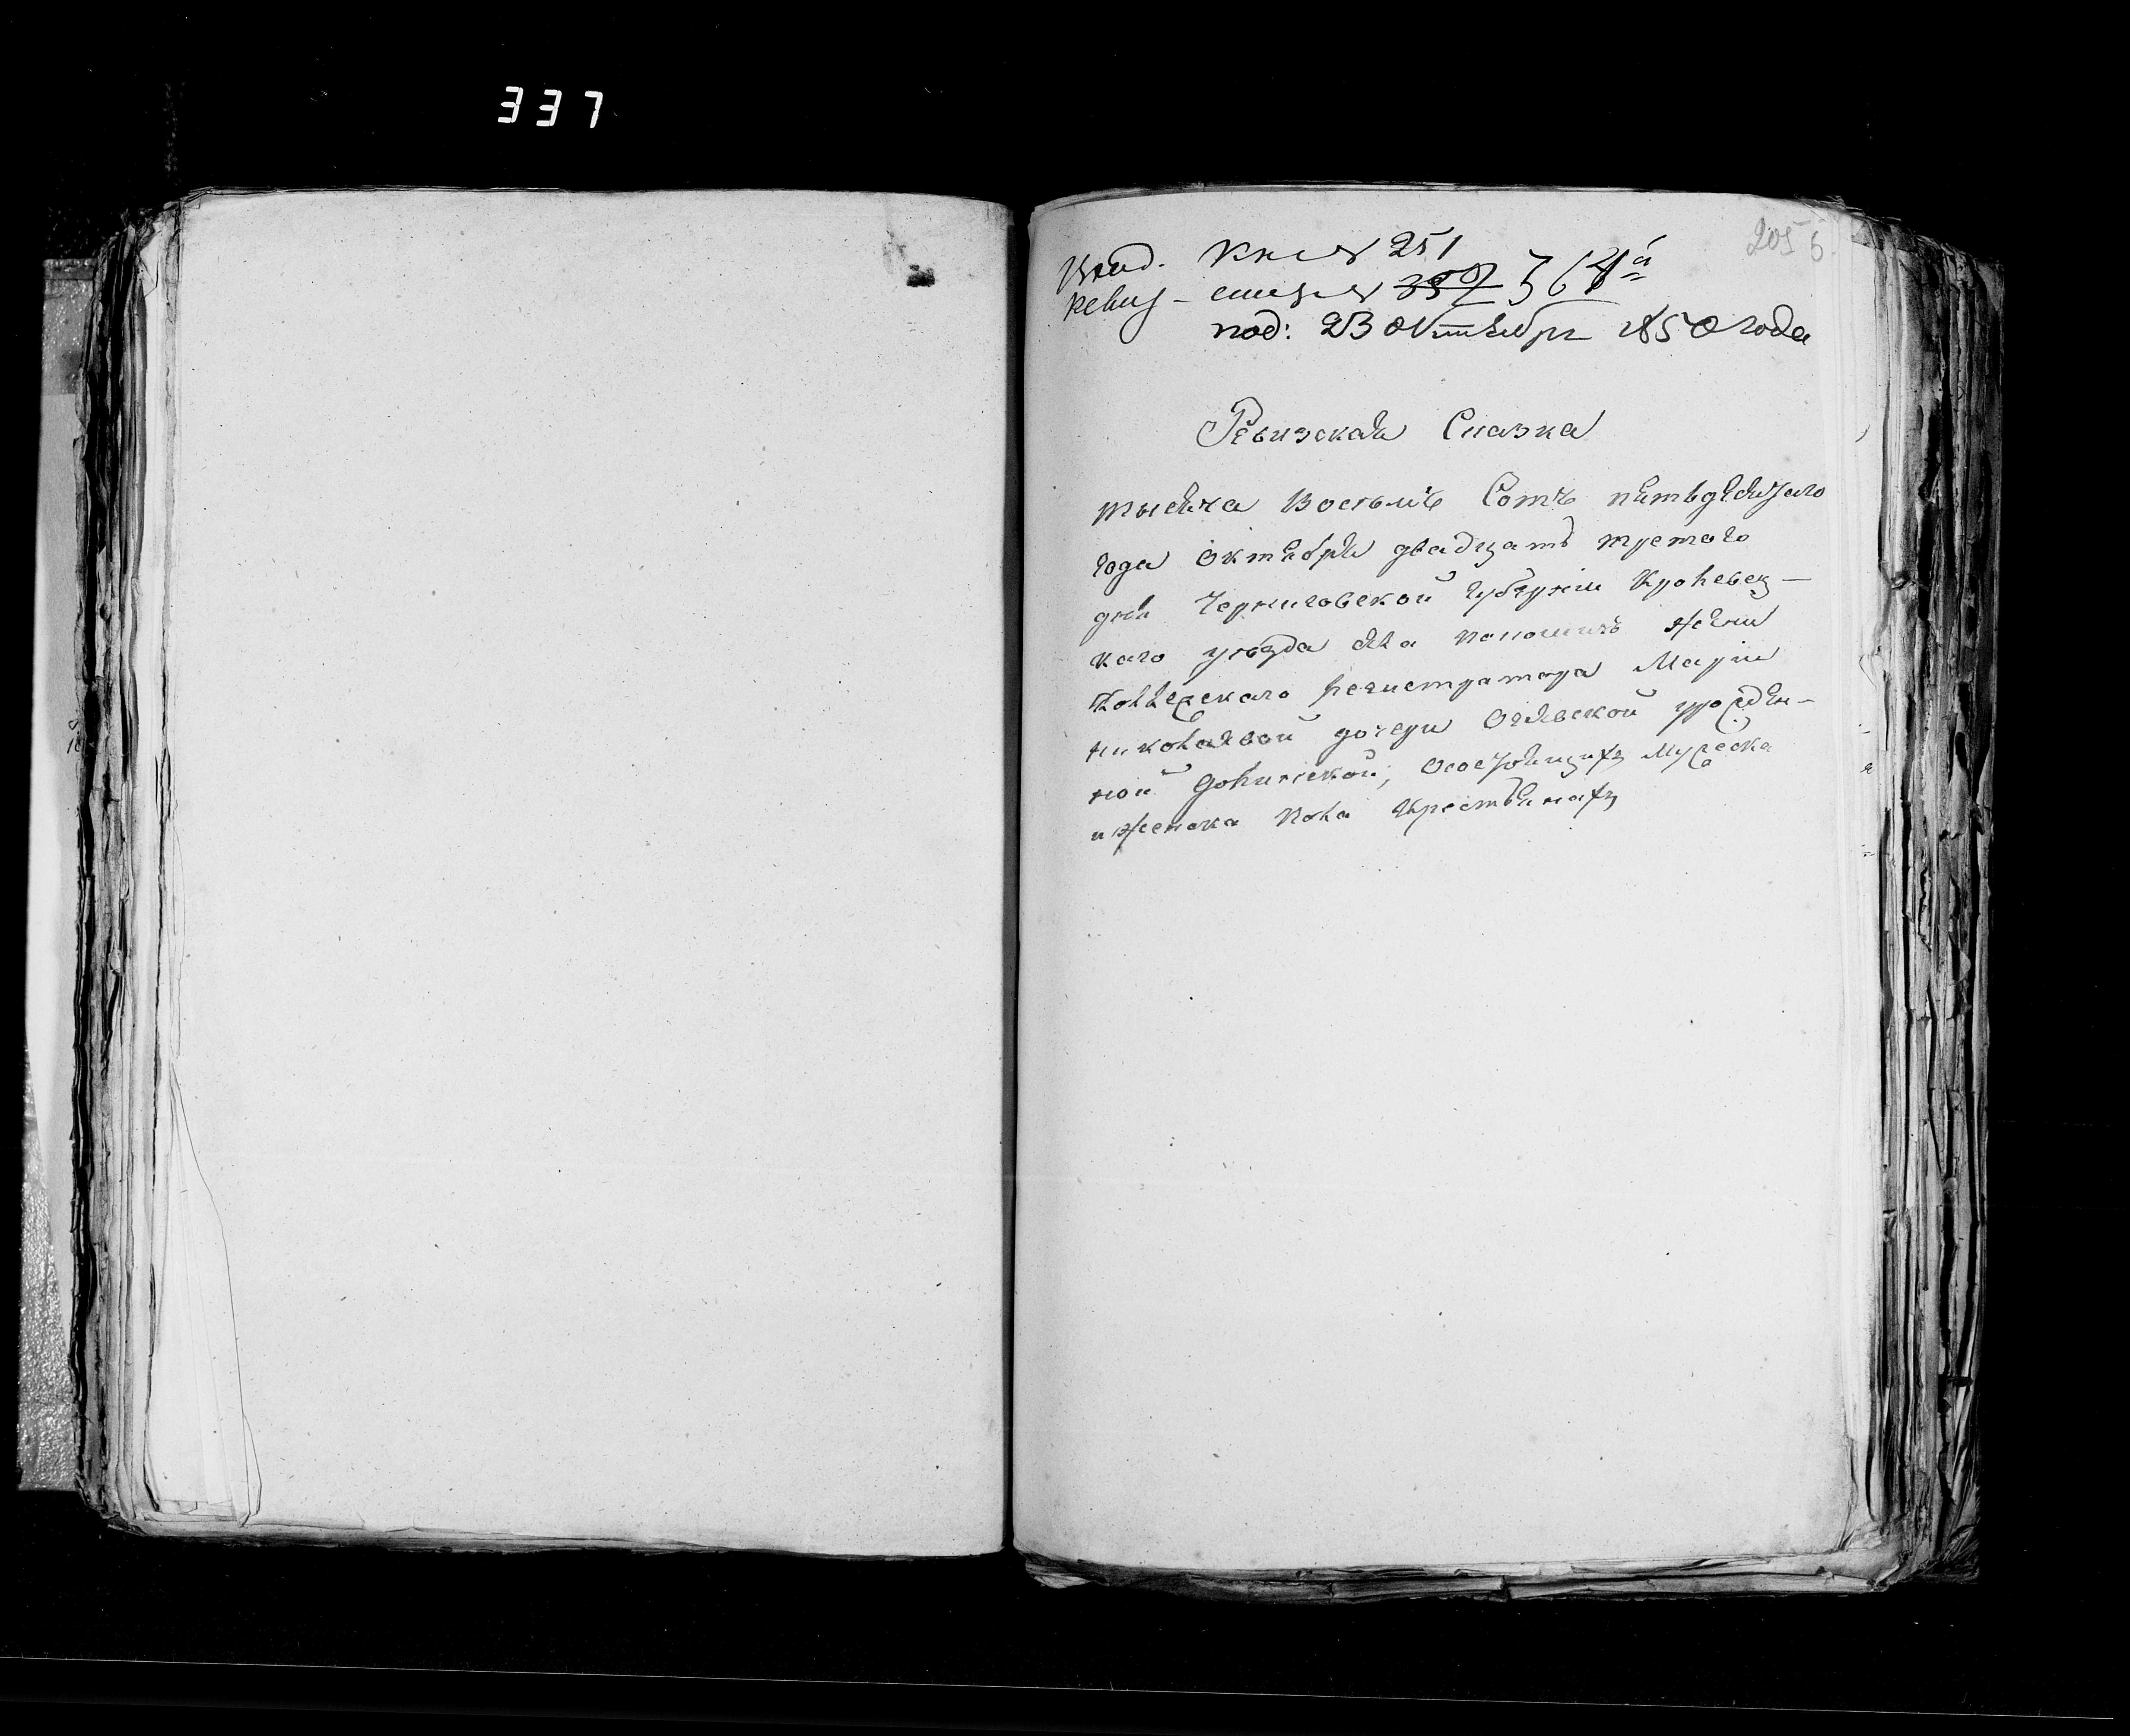 337
205
Вход. Кн. № 251
Ревиз. № 357 364й
под: 23 Октября 1850 года
Ревизская Сказка
тысяча Восемь Сотъ пятьдесятаго
года октября двадцать третого
дня Черниговской губерніи Кролевец-
каго уезда жены
Колежскаго регистратора Маріи
николаевой дочери урожден-
ной состоящихъ мужеска
и женска пола крестьянахъ